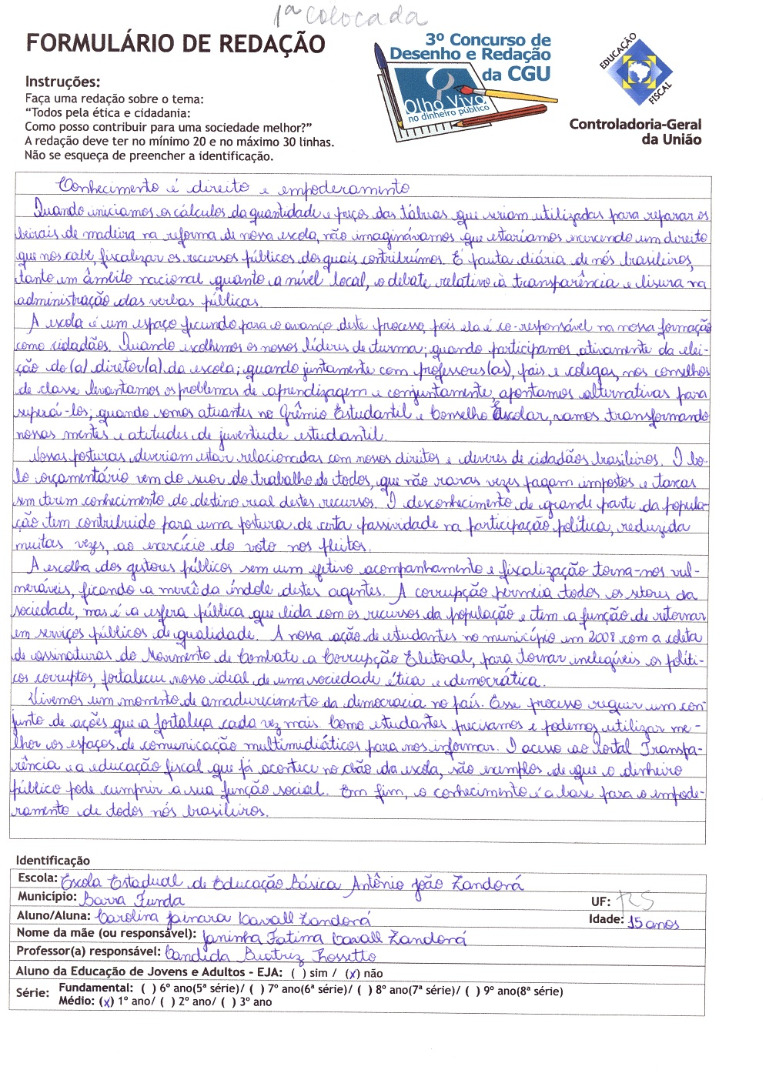 1ª colocada
FORMULÁRIO DE REDAÇÃO
3º Concurso de
Desenho e Redação
da CGU
Olho Vivo
no dinheiro público
EDUCAÇÃO
FISCAL
Controladoria-Geral
da União
Instruções:
Faça uma redação sobre o tema:
“Todos pela ética e cidadania:
Como posso contribuir para uma sociedade melhor?”
A redação deve ter no mínimo 20 e no máximo 30 linhas.
Não se esqueça de preencher a identificação.
Conhecimento é direito e empoderamento
Quando iniciamos os cálculos da quantidade e preços das tábuas que seriam utilizadas para reparar os
beirais de madeira na reforma de nossa escola, não imaginávamos que estaríamos exercendo um direito
que nos cabe, fiscalizar os recursos públicos dos quais contribuímos. É pauta diária de nós brasileiros,
tanto em âmbito nacional quanto a nível local, o debate relativo à transparência e lisura na
administração das verbas públicas.
A escola é um espaço fecundo para o avanço deste processo, pois ela é co-responsável na nossa formação
como cidadãos. Quando escolhemos os nossos líderes de turma; quando participamos ativamente da elei-
ção do(a) diretor(a) da escola; quando juntamente com professores(as), pais e colegas, nos conselhos
de classe levantamos os problemas de aprendizagem e conjuntamente, apontamos alternativas para
superá-los; quando somos atuantes no Grêmio Estudantil e Conselho Escolar, vamos transformando
nossas mentes e atitudes de juventude estudantil.
Nossas posturas deveriam estar relacionadas com nossos direitos e deveres de cidadãos brasileiros. O bo-
lo orçamentário vem do suor do trabalho de todos, que não raras vezes pagam impostos e taxas
sem terem conhecimento do destino real destes recursos. O desconhecimento de grande parte da popula-
ção tem contribuído para uma postura de certa passividade na participação política, reduzida
muitas vezes, ao exercício do voto nos pleitos.
A escolha dos gestores públicos sem um efetivo acompanhamento e fiscalização torna-nos vul-
neráveis, ficando a mercê da índole destes agentes. A corrupção permeia todos os setores da
sociedade, mas é a esfera pública que lida com os recursos da população e tem a função de retornar
em serviços públicos de qualidade. A nossa ação de estudantes no município em 2008 com a coleta
de assinaturas do Movimento de Combate a Corrupção Eleitoral, para tornar inelegíveis os políti-
cos corruptos, fortaleceu nosso ideal de uma sociedade ética e democrática.
Vivemos um momento de amadurecimento da democracia no país. Esse processo requer um con-
junto de ações que a fortaleça cada vez mais. Como estudantes precisamos e podemos utilizar me-
lhor os espaços de comunicação multimediáticos para nos informar. O acesso ao Portal Transpa-
rência e a educação fiscal que já acontece no chão da escola, são exemplos de que o dinheiro
público pode cumprir a sua função social. Em fim, o conhecimento é a base para o empode-
ramento de todos nós brasileiros.
Identificação
Escola: Escola Estadual de Educação Básica Antônio João Zandoná
Município: Barra Funda UF: RS
Aluno/Aluna: Carolina Jainara Cavall Zandoná Idade: 15 anos
Nome da mãe (ou responsável): Janinha Fatima Cavall Zandoná
Professor(a) responsável: Candida Beatriz Rossetto
Aluno da Educação de Jovens e Adultos - EJA: ( ) sim / (x) não
Série: Fundamental: ( ) 6º ano(5ª série)/ ( ) 7º ano(6ª série)/ ( ) 8º ano(7ª série)/ ( ) 9º ano(8ª série)
Médio: (x) 1º ano/ ( ) 2º ano/ ( ) 3º ano